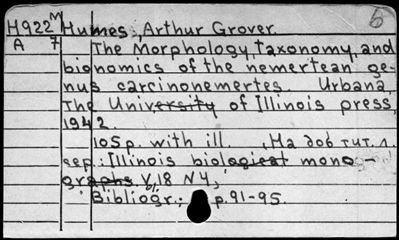 б
H922 M Humes, Arthur Grover.
A 7 The Morphology, taxonomy, and
bionomics of the nemertean ge-
nus carcinonemertes. Urbana,
The University of Illinois press,
1942.
105p. with ill. (На доб тит. л.
сер.: Illinois biological mono-
graphs. Vol. 18 N4,
Bibliogr.: p. 91-95.